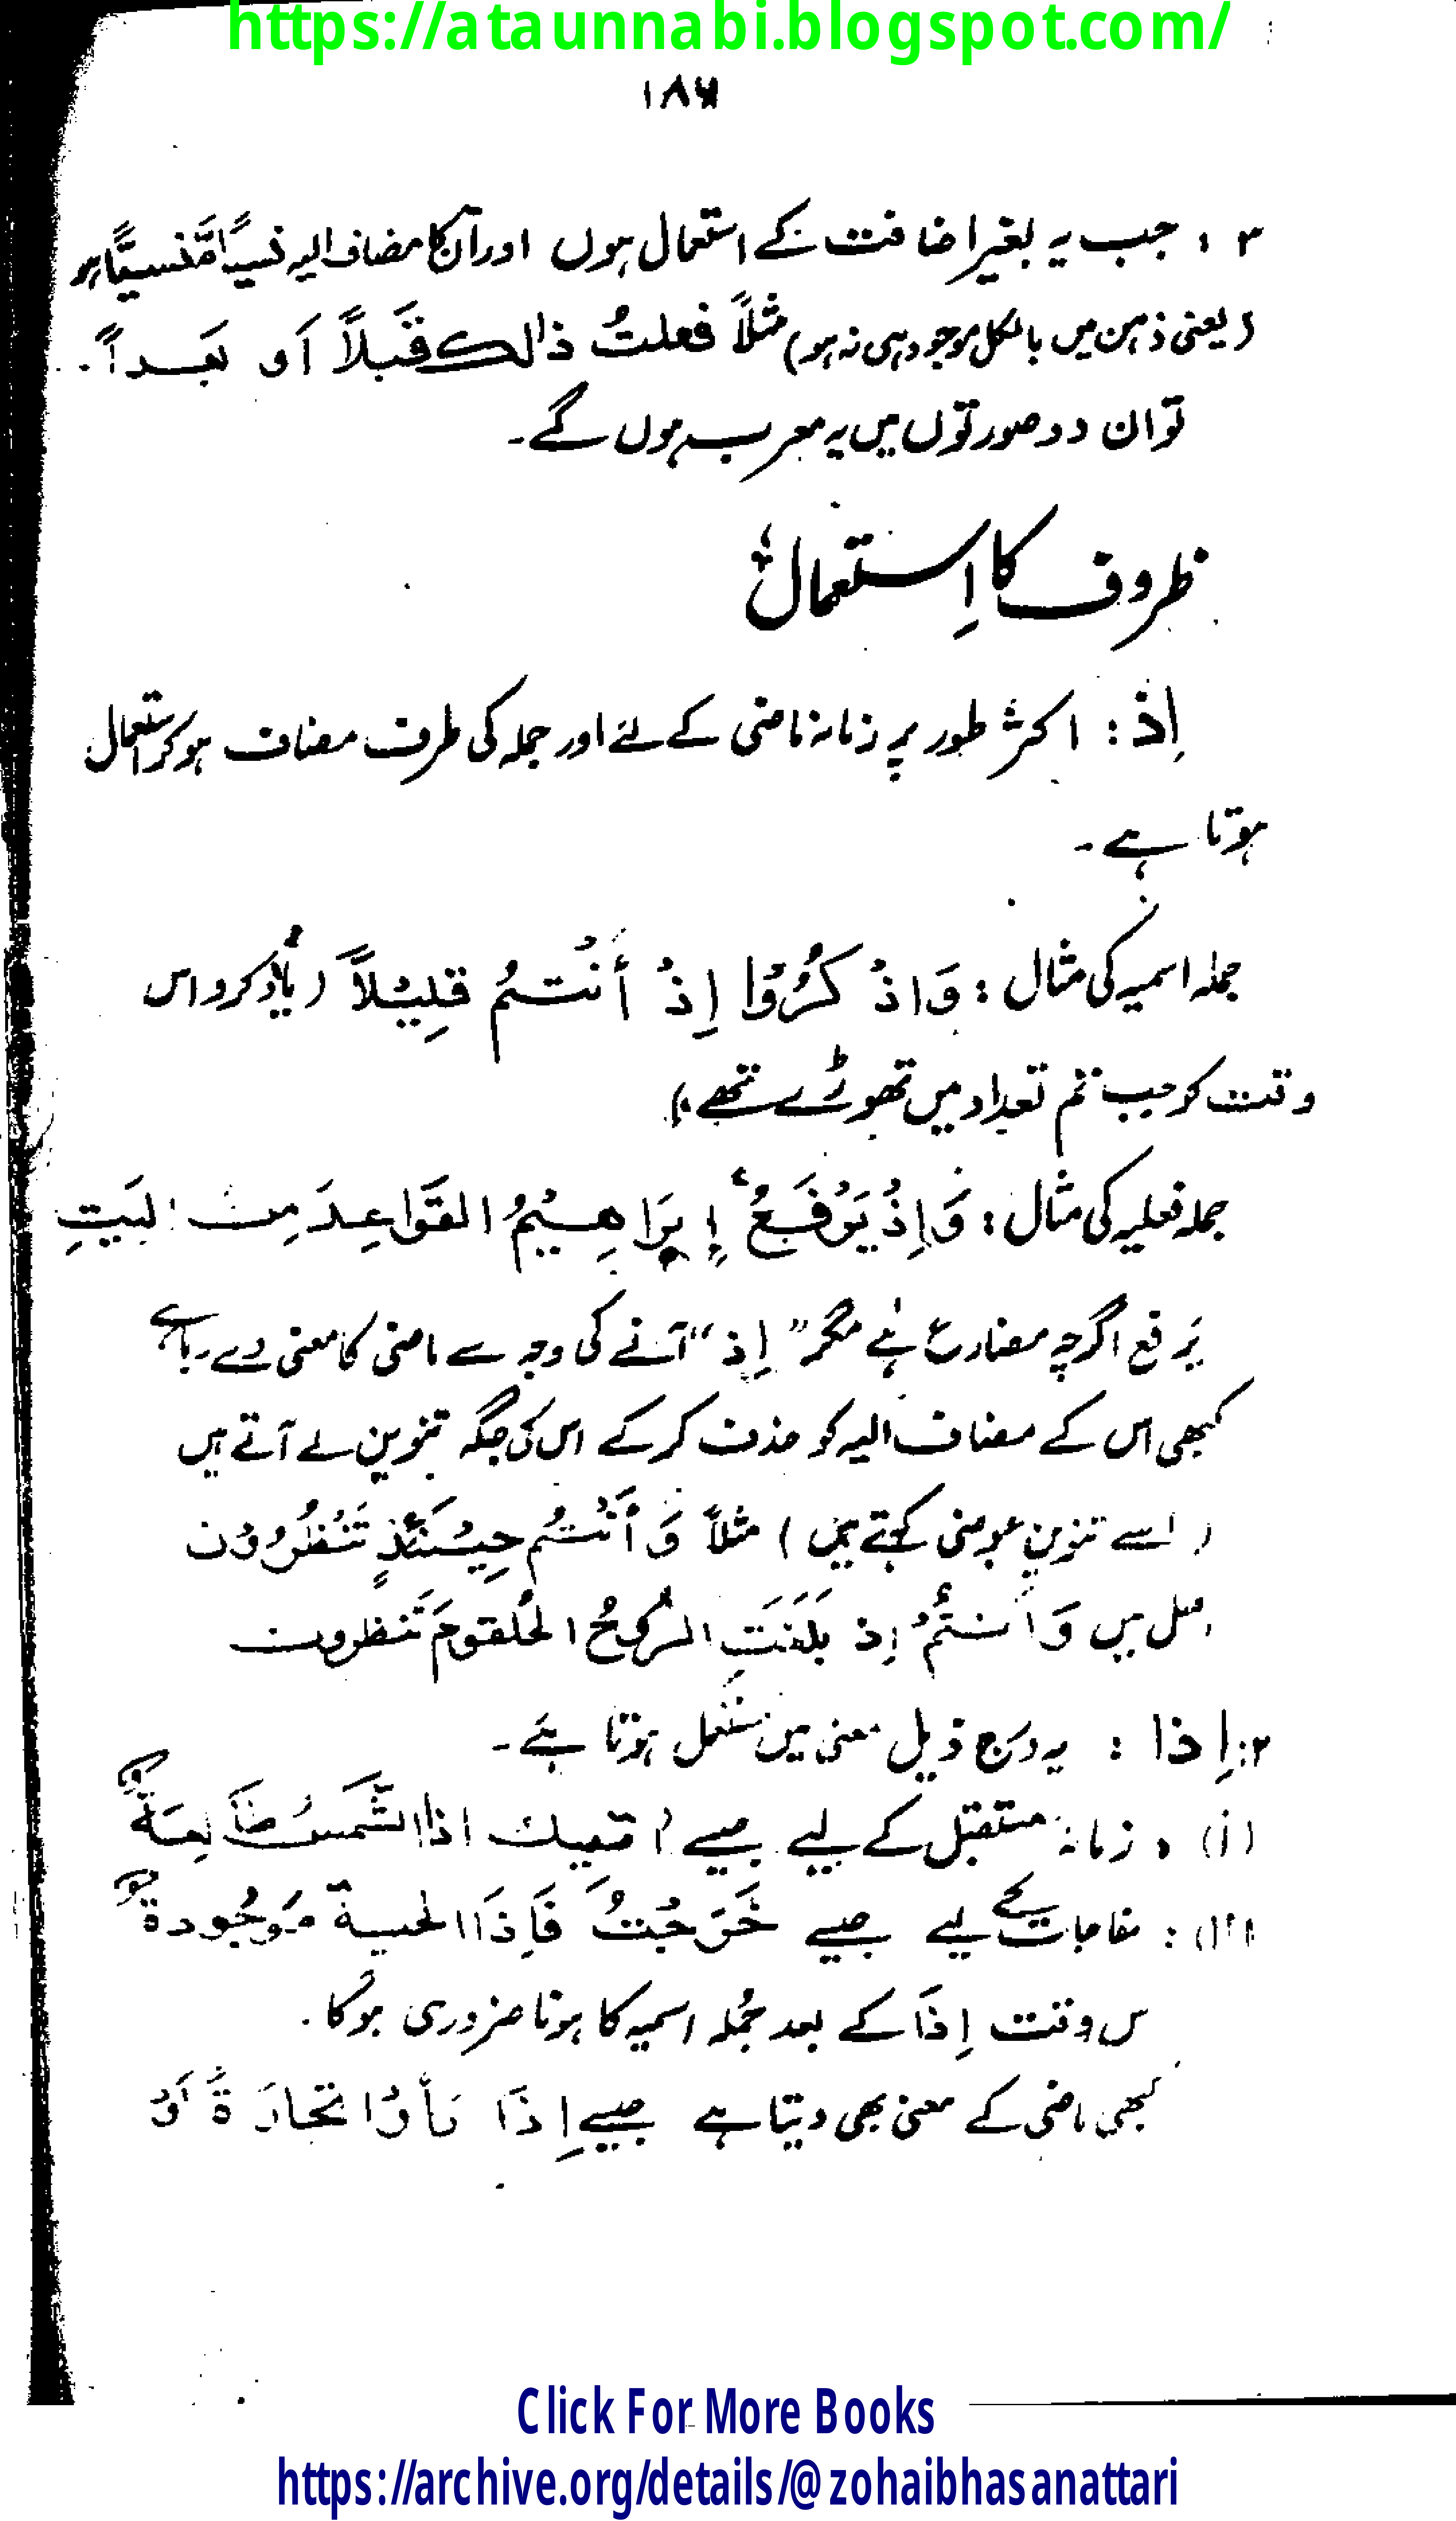 https://ataunnabi.blogspot.com/
۱۸۶
۳ : جب یہ بغیر اضافت کے استعمال ہوں اور ان کا مضاف الیہ نسیًا مَّنسیًّا ہو
(یعنی ذہن میں بالکل موجود ہی نہ ہو) مثلاً فعلتُ ذالک قَبلاً اَو بَعداً۔
تو ان دو صورتوں میں یہ معرب ہوں گے۔
ظروف کا اِستعمال
اِذْ : اکثر طور پر زمانہ ماضی کے لئے اور جملہ کی طرف مضاف ہو کر استعمال
ہوتا ہے۔
جملہ اسمیہ کی مثال : وَاذْكُرُوْا اِذْ أَنْتُمْ قَلِيْلاً (یاد کرو اس
وقت کو جب تم تعداد میں تھوڑے تھے)
جملہ فعلیہ کی مثال : وَاِذْ يَرْفَعُ إِبْرَاهِيْمُ القَوَاعِدَ مِن البَيتِ
یَرفع اگرچہ مضارع ہے مگر "اِذ" آنے کی وجہ سے ماضی کا معنی دے رہا ہے
کبھی اس کے مضاف الیہ کو حذف کر کے اس کی جگہ تنوین لے آتے ہیں
(اسے تنوین عوضی کہتے ہیں) مثلاً وَأَنْتُم حِيْنَئِذٍ تَنْظُرُوْن
اصل میں وَاَنْتُمْ اِذ بَلَغَتِ الرُّوحُ الحُلقومَ تَنظرون
۲: اِذا : یہ درج ذیل معنی میں مستعمل ہوتا ہے۔
(i) : زمانہ مستقبل کے لیے جیسے اٰتیک اذا الشَّمسُ طَالِعَةٌ
(ii) : مفاجات کے لیے جیسے خَرَجْتُ فَاِذَا الحیة مَوجُودةٌ
س وقت اِذَا کے بعد جُملہ اسمیہ کا ہونا ضروری ہوگا۔
کبھی ماضی کے معنی بھی دیتا ہے جیسے اِذَا رَأَوْا تِجَارَةً اَوْ
Click For More Books
https://archive.org/details/@zohaibhasanattari